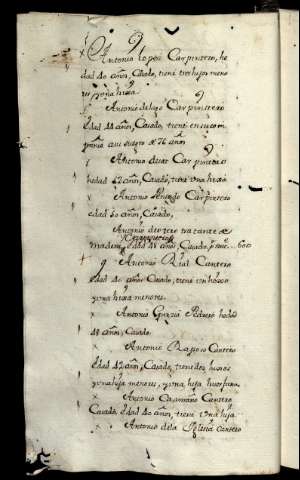 Antonio Lopez Carpintero, he
dad 40 años, Casado, tiene tres hijos meno
res y una hixa
Antonio de lugo Carpintero
Edad 44 años, Casado, tiene en su com
pañia a su suegro de 76 años
Antonio Carpintero
hedad 42 años, Casado, tiene una hixa
Antonio Carpintero
edad 50 años, Casado,
Antonio de tratante de
madera, edad 41 años Casado
Antonio Rial Cantero
Edad 40 años Casado, tiene un hixo
y una hixa menores
Antonio Garzia hedad
48 años, Casado
Antonio Raposo Cantero
Edad 42 años, Casado, tiene dos hixos
y una hija menores, y una hija
Antonio Caamaño Cantero
Casado, Edad 40 años, tiene una hija
Antonio de la Iglesia Cantero